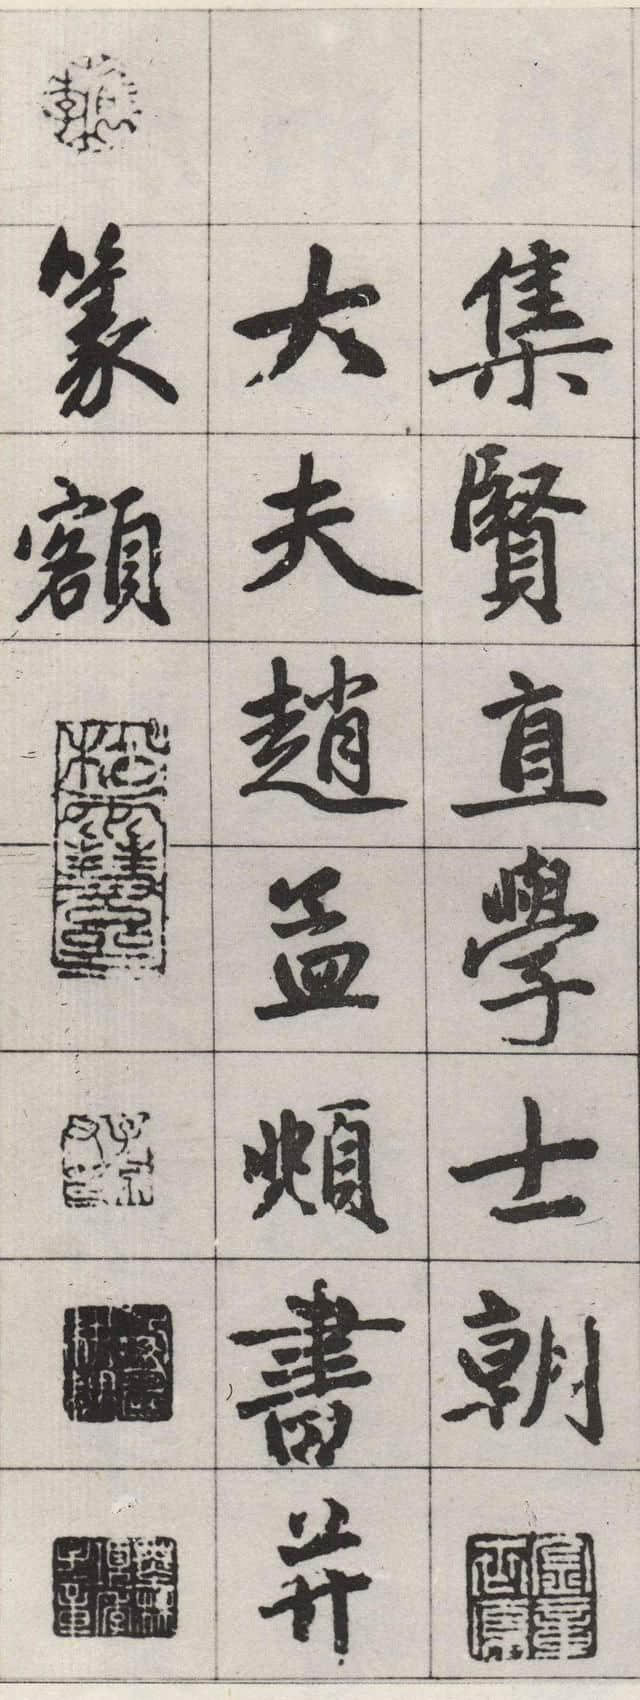 集賢直學士朝
大夫趙孟頫書并
篆額